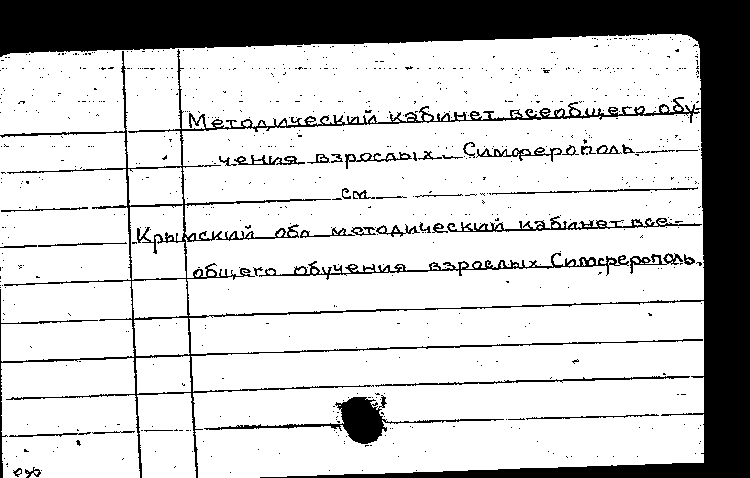 Методический кабинет всеобщего обу-
чения взрослых. Симферополь
см
Крымский обл методический кабинет все-
общего обучения взрослых Симферополь.